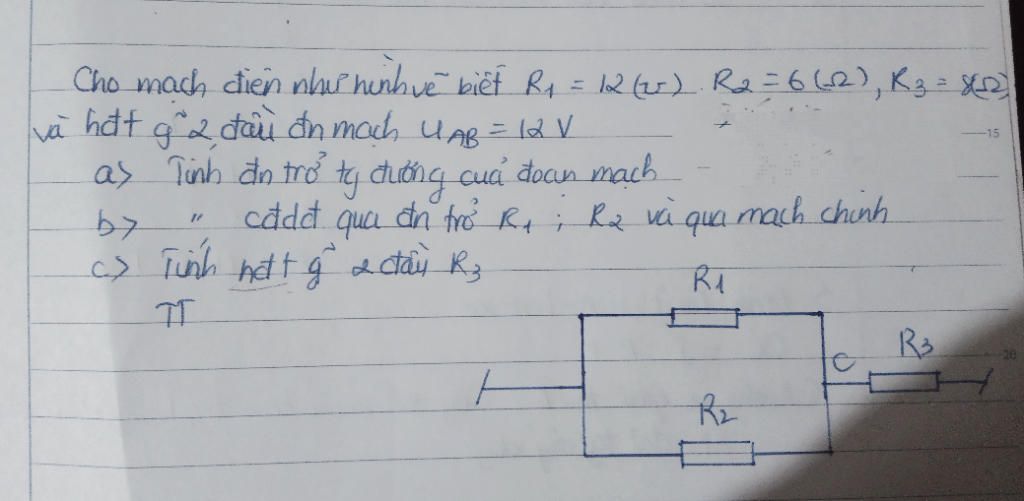 Cho mạch điện như hình vẽ biết R1 = 12 (Ω). R2 = 6 (Ω), R3 = 8(Ω)
và hđt g~ 2 đầu đn mạch UAB = 12 V
a> Tính đn trở tg đương của đoạn mạch
b> " cđdđ qua đn trở R1 ; R2 và qua mạch chính
c> Tính hđt g~ 2 đầu R3
TT
R1
C
R3
R2
15
20